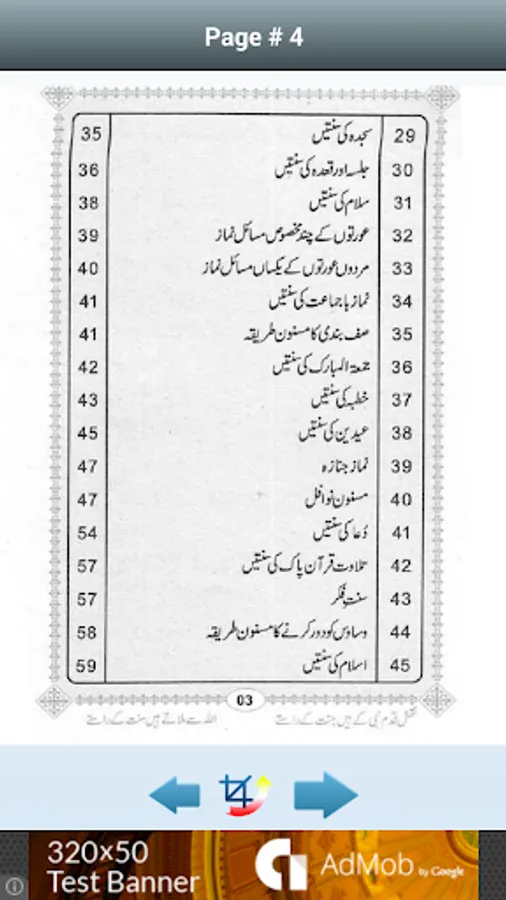 Page # 4
29 سجدہ کی سنتیں 35
30 جلسہ اور قعدہ کی سنتیں 36
31 سلام کی سنتیں 38
32 عورتوں کے چند مخصوص مسائل نماز 39
33 مردوں عورتوں کے یکساں مسائل نماز 40
34 نماز باجماعت کی سنتیں 41
35 صف بندی کا مسنون طریقہ 41
36 جمعۃ المبارک کی سنتیں 42
37 خطبہ کی سنتیں 43
38 عیدین کی سنتیں 45
39 نماز جنازہ 47
40 مسنون نوافل 47
41 دُعا کی سنتیں 54
42 تلاوت قرآن پاک کی سنتیں 57
43 سنتِ فکر 57
44 وساوس کو دور کرنے کا مسنون طریقہ 58
45 اسلام کی سنتیں 59
03
نقش قدم نبی کے ہیں جنت کے راستے اللہ سے ملاتے ہیں سنت کے راستے
320×50
Test Banner
AdMob by Google